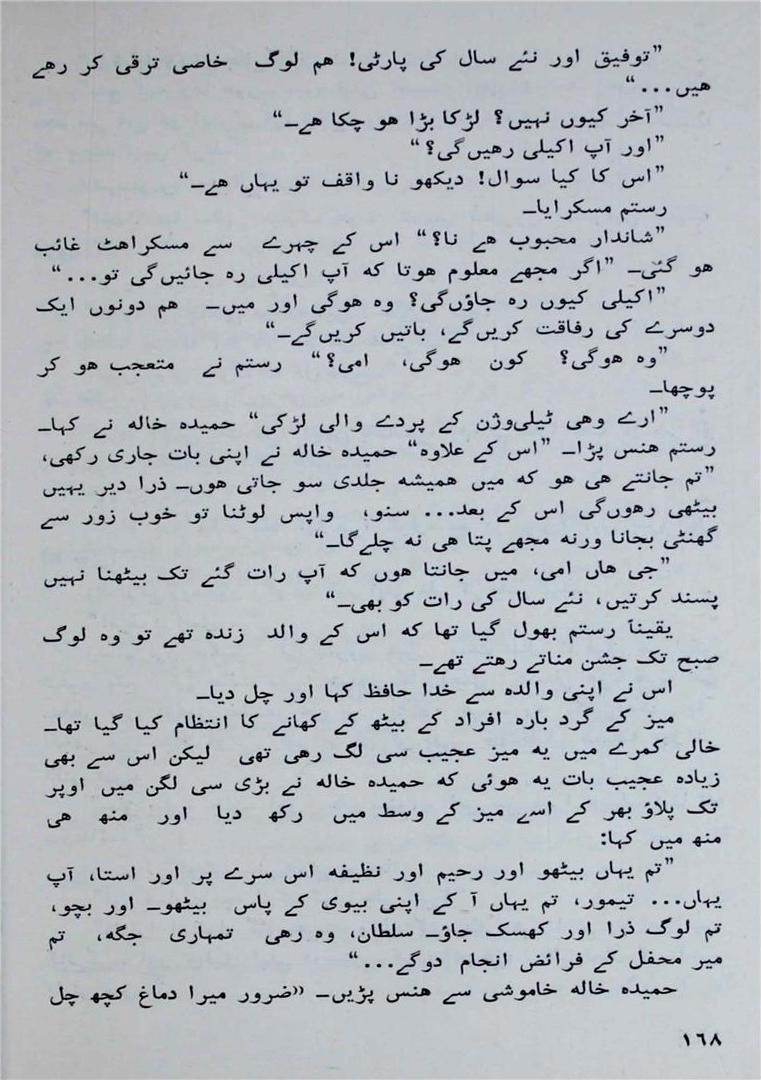 ”توفیق اور نئے سال کی پارٹی! هم لوگ خاصی ترقی کر رهے
هیں...“
”آخر کیوں نہیں؟ لڑکا بڑا هو چکا هے۔“
”اور آپ اکیلی رهیں‌گی؟“
”اس کا کیا سوال! دیکھو نا واقف تو یہاں هے۔“
رستم مسکرایا۔
”شاندار محبوب هے نا؟“ اس کے چہرے سے مسکراهٹ غائب
هو گئی۔ ”اگر مجھے معلوم هوتا که آپ اکیلی ره جائیں‌گی تو...“
”اکیلی کیوں ره جاؤں‌گی؟ وه هوگی اور میں۔ هم دونوں ایک
دوسرے کی رفاقت کریں‌گے، باتیں کریں‌گے۔“
”وه هوگی؟ کون هوگی، امی؟“ رستم نے متعجب هو کر
پوچھا۔
”ارے وهی ٹیلی‌وژن کے پردے والی لڑکی“ حمیده خاله نے کہا۔
رستم هنس پڑا۔ ”اس کے علاوه“ حمیده خاله نے اپنی بات جاری رکھی،
”تم جانتے هی هو که میں همیشه جلدی سو جاتی هوں۔ ذرا دیر یہیں
بیٹھی رهوں‌گی اس کے بعد... سنو، واپس لوٹنا تو خوب زور سے
گھنٹی بجانا ورنه مجھے پتا هی نه چلے‌گا۔“
”جی هاں امی، میں جانتا هوں که آپ رات گئے تک بیٹھنا نہیں
پسند کرتیں، نئے سال کی رات کو بھی۔“
یقیناً رستم بھول گیا تھا که اس کے والد زنده تھے تو وه لوگ
صبح تک جشن مناتے رهتے تھے۔
اس نے اپنی والده سے خدا حافظ کہا اور چل دیا۔
میز کے گرد باره افراد کے بیٹھ کے کھانے کا انتظام کیا گیا تھا۔
خالی کمرے میں یه میز عجیب سی لگ رهی تھی لیکن اس سے بھی
زیاده عجیب بات یه هوئی که حمیده خاله نے بڑی سی لگن میں اوپر
تک پلاؤ بھر کے اسے میز کے وسط میں رکھ دیا اور منھ هی
منھ میں کہا:
”تم یہاں بیٹھو اور رحیم اور نظیفه اس سرے پر اور استا، آپ
یہاں... تیمور، تم یہاں آ کے اپنی بیوی کے پاس بیٹھو۔ اور بچو،
تم لوگ ذرا اور کھسک جاؤ۔ سلطان، وه رهی تمہاری جگه، تم
میر محفل کے فرائض انجام دوگے...“
حمیده خاله خاموشی سے هنس پڑیں۔ ”ضرور میرا دماغ کچھ چل
١٦٨